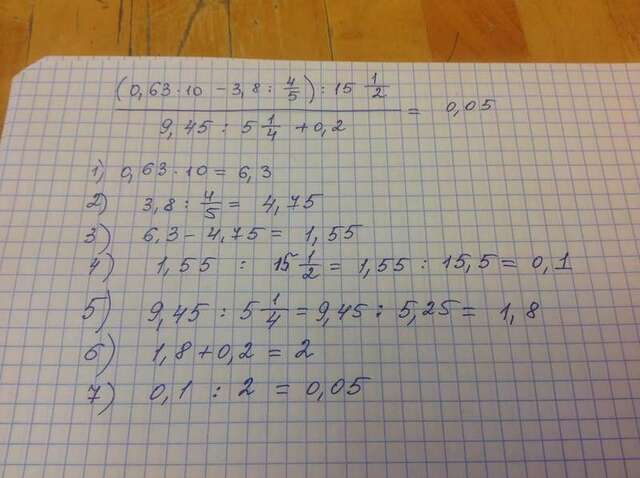 (0,63·10 - 3,8 : 4/5) : 15 1/2
9,45 : 5 1/4 + 0,2 = 0,05
1) 0,63·10 = 6,3
2) 3,8 : 4/5 = 4,75
3) 6,3 - 4,75 = 1,55
4) 1,55 : 15 1/2 = 1,55 : 15,5 = 0,1
5) 9,45 : 5 1/4 = 9,45 : 5,25 = 1,8
6) 1,8 + 0,2 = 2
7) 0,1 : 2 = 0,05